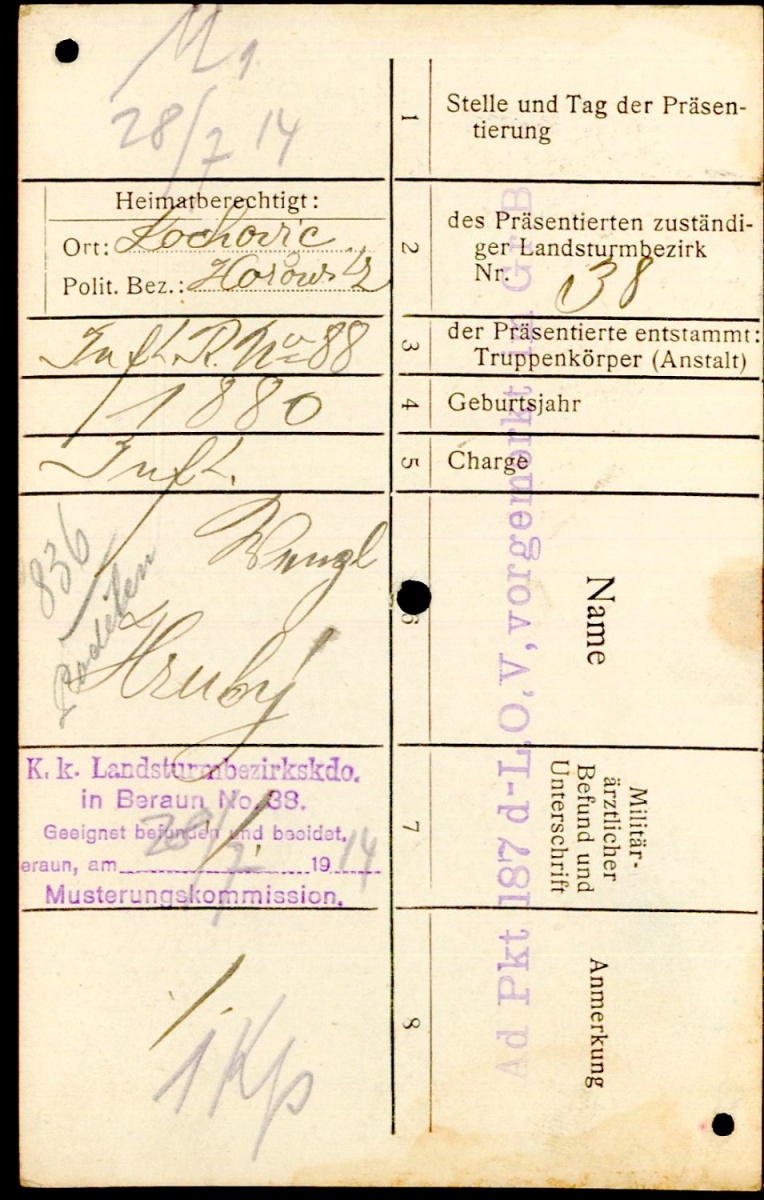 M 1
28/7 14
1
Stelle und Tag der Präsen-
tierung
Heimatberechtigt:
Ort: Lochovic
Polit. Bez.: Hořowitz
2
des Präsentierten zuständi-
ger Landsturmbezirk
Nr. 38
Inft. R. No 88
3
der Präsentierte entstammt:
Truppenkörper (Anstalt)
1880
4
Geburtsjahr
Inft.
5
Charge
836
Wenzl
Hruby
6
Name
K. k. Landsturmbezirkskdo.
in Beraun No. 38.
Geeignet befunden und beeidet,
eraun, am 28/7 1914
Musterungskommission.
7
Militär-
ärztlicher
Befund und
Unterschrift
1 Kp
8
Anmerkung
Ad Pkt 187 d-L.O,V, vorgemerkt im GrB